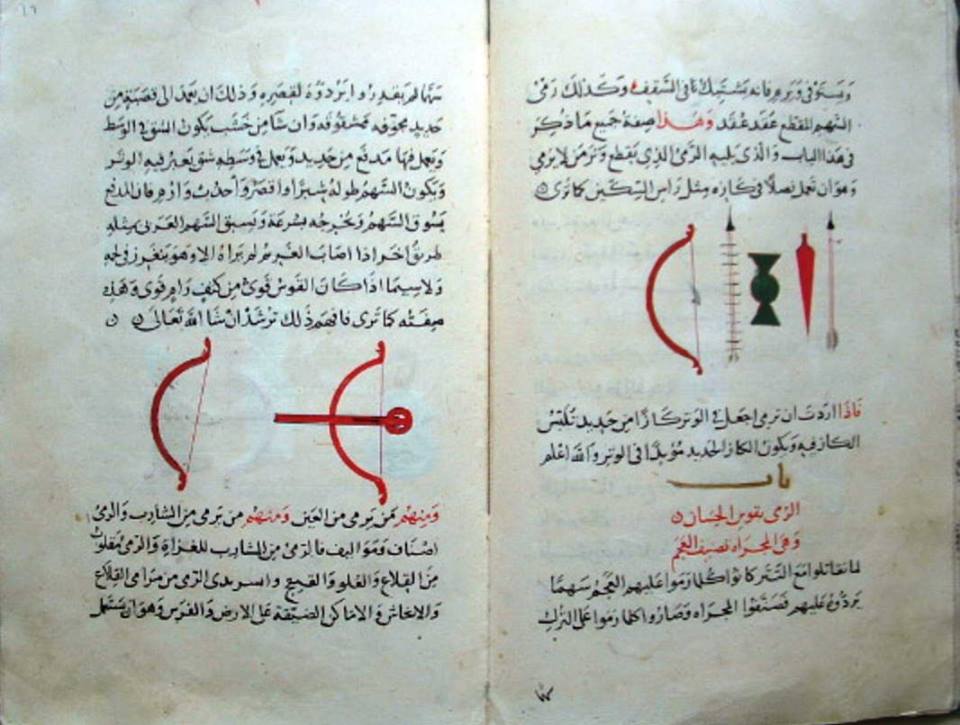 ويستوفي ويرم فانه يشتبك نافي السقف وكذلك رمى
السهم المقطع عقد عقد وهذا صفة جميع ما ذكر
في هذا الباب والذى يليه الرمى الذى يقطع وترمن لا يرمى
وهو ان تعمل نصلا في كازه مثل راس السكين كما ترى
فاذا اردت ان ترمى اجعل في الوتر كازا من حديد
الكاز فيه ويكون الكاز الحديد في الوتر والله اعلم
باب
الرمى بقوس الحسان
وهى المجراه تصنيف العجم
لما تقاتلوا مع التتر كانوا كلما رموا عليهم العجم سهما
يردون عليهم فصنفوا المجراه وصاروا كلما رموا على الترك
سهما لم يقدروا يردوه لقصره وذلك ان يعمد الى قصبة من
حديد مجوفه مشقوقه وان شا من خشب يكون الشق في الوسط
ويعمل فيها مدفع من حديد ويعمل في وسطه شق يعبر فيه الوتر
ويكون السهم طوله شبرا او اقصر واجذب وارم فان المدفع
يسوق السهم ويخرجه بسرعة ويسبق السهم العربى بمثله
طريق اخر اذا اصاب الغير لم يراه الا وهو ينغرز في لحمه
ولا سيما اذا كان القوس قوى من كتف رام قوى وهذه
صفته كما ترى فافهم ذلك ترشد ان شا الله تعالى
ومنهم من يرمى من العين ومنهم من يرمى من الشارب والرمى
اصناف وهو اليف فالرمى من الشارب للغزاة والرمى
من القلاع والعلو والرمى من مرامى القلاع
والاماكن الضيقة على الارض والفرس وهو ان يستعمل